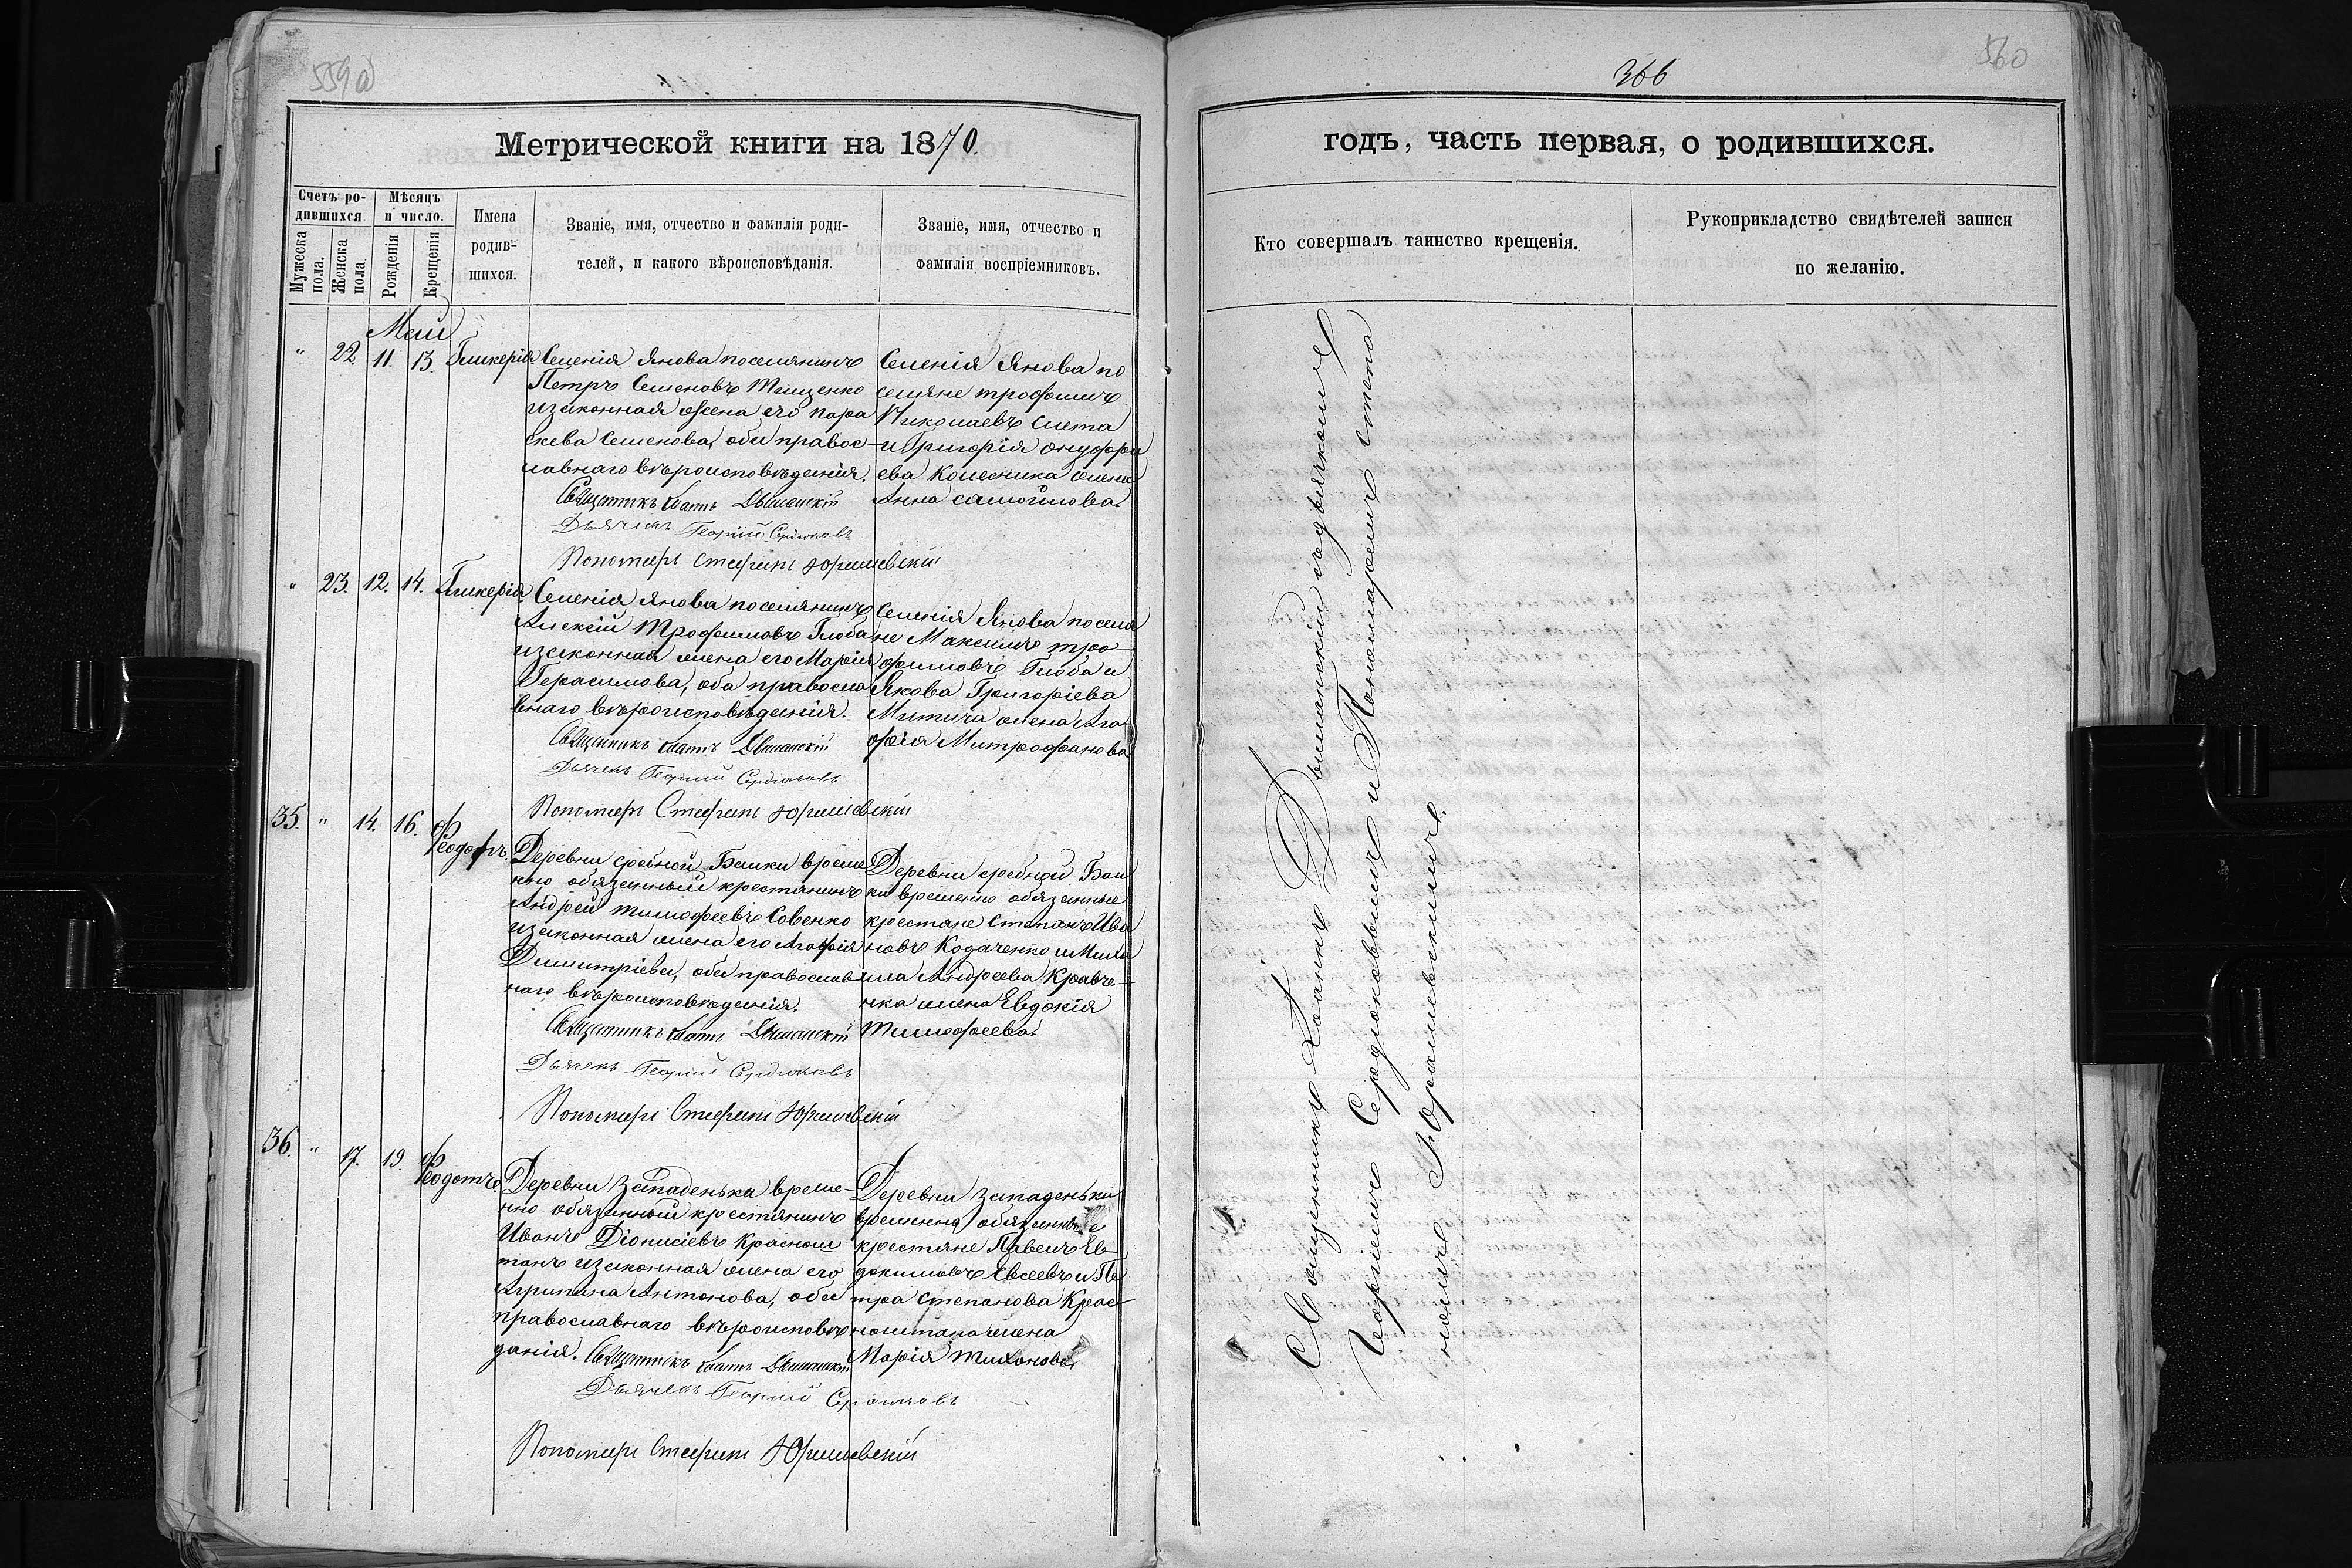 559а
Метрической книги на 1870.
Счетъ ро-
дившихся
Мѣсяцъ
и число.
Мужеска
пола.
Женска
пола.
Рожденія
Крещенія
Имена
родив-
шихся.
Званіе, имя, отчество и фамилія роди-
телей, и какого вѣроисповѣданія.
Званіе, имя, отчество и
фамилія воспріемниковъ.
Май
" 22. 11. 13. Гликерія
Семенія Янова поселянинъ
Петръ Семеновъ Тищенко
и законная жена его Пара
скева Семенова, оба правос-
лавнаго вѣроисповѣданія.
Священникъ Іоаннъ
Дьячекъ Георгій Сердюковъ
Пономарь Стефанъ Юрашевскій
Семенія Янова по
селяне Трофимъ
Николаевъ
и Григорія Онуфрі
ева Колесника жена
Анна Самойлова
" 23. 12. 14. Гликерія
Семенія Янова поселянинъ
Алексій Трофимовъ Глоба
и законная жена его Марія
Герасимова, оба правосла
внаго вѣроисповѣданія.
Священникъ Іоаннъ
Дьячекъ Георгій Сердюковъ
Пономарь Стефанъ Юрашевскій
Семенія Янова поселя
не Максимъ Тро-
фимовъ Глоба и
Якова Григоріева
жена Ага
фія Митрофанова
35. " 14. 16. Феодотъ
Деревни Сребной Балки време
нно обязанный крестянинъ
Андрей Тимофеевъ Совенко
и законная жена его Агафія
Димитріева, оба православ
наго вѣроисповѣданія.
Священникъ Іоаннъ
Дьячекъ Георгій Сердюковъ
Пономарь Стефанъ Юрашевскій
Деревни Сребной Бал
ки временно обязанные
крестяне Степанъ Ива
новъ Кодаченко и Миха
ила Андреева Кравче-
нка жена Евдокія
Тимофеева.
36. " 17. 19. Феодотъ
Деревни Западеньки време-
нно обязанный крестянинъ
Иванъ Діонисіевъ Краснош
танъ и законная жена его
Агрипина Антонова, оба
православнаго вѣроисповѣ
данія. Священникъ Іоаннъ
Дьячекъ Георгій Сердюковъ
Пономарь Стефанъ Юрашевскій
Деревни Западеньки
временно обязанные
крестяне Павелъ Ев-
докимовъ Евсеевъ и Пе
тра Степанова Крас-
ноштана жена
Марія Тихонова
366
560
годъ, часть первая, о родившихся.
Кто совершалъ таинство крещенія.
Рукоприкладство свидѣтелей записи
по желанію.
Священникъ Іоаннъ съ дьячкомъ
Георгіемъ Сердюковымъ и Пономаремъ Стефа
номъ Юрашевскимъ.